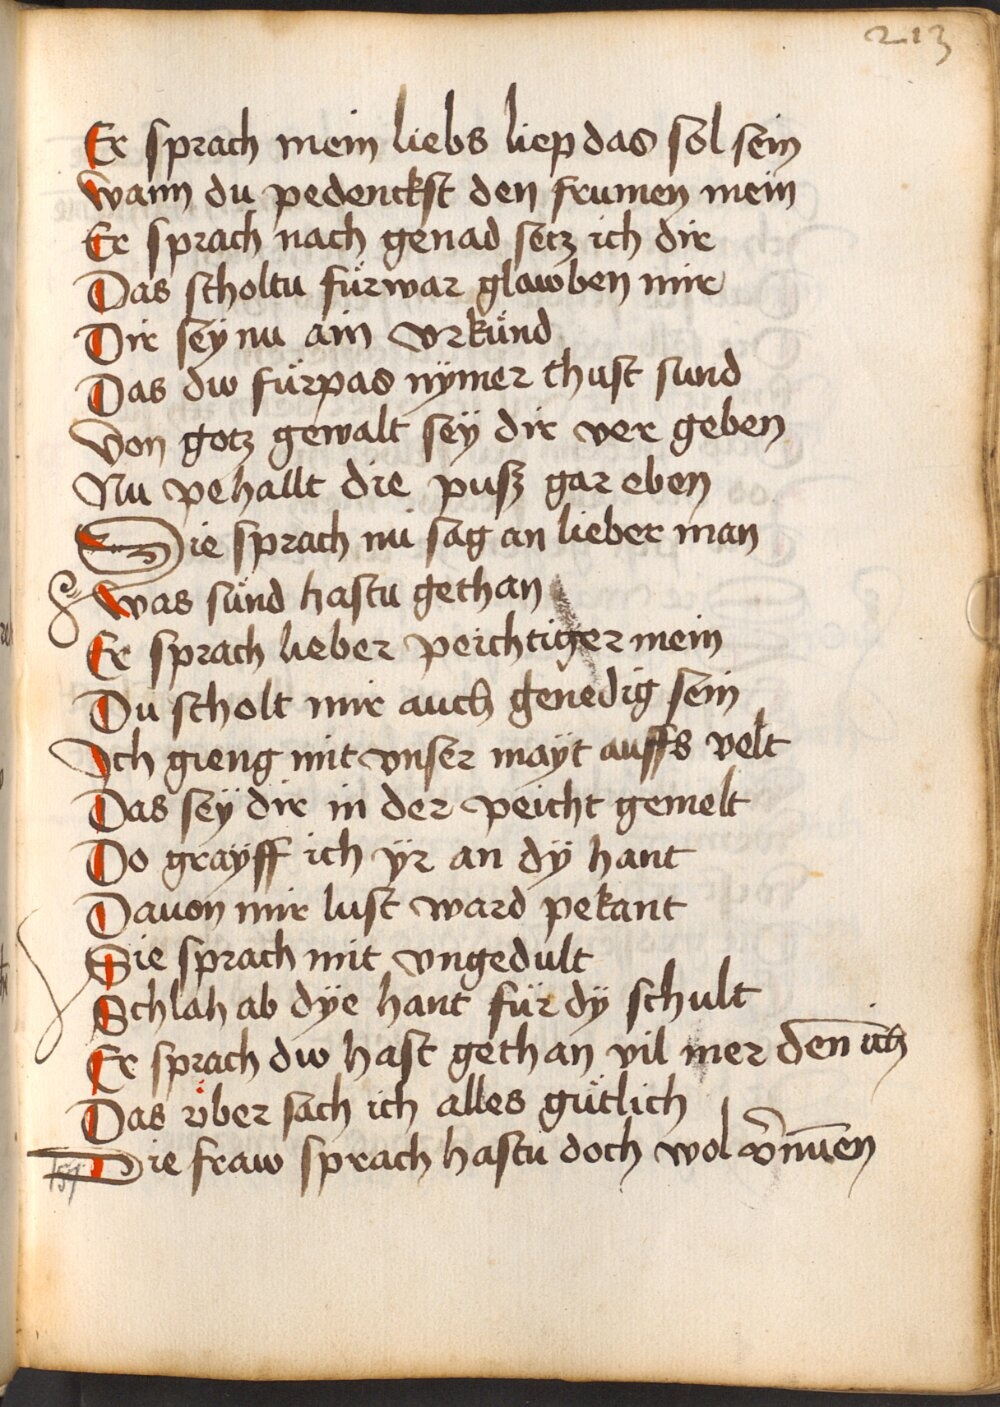 213
Er sprach mein liebs liep das sol sein
wann du pedenckst den frumen mein
Er sprach nach genad setz ich dir
Das scholtu fürwar glawben mir
Dir sey nu ain vrkünd
Das dw fürpas nÿmer thust sund
Von gotz gewalt seÿ dir ver geben
Nu pehallt die pusz gar eben
Sie sprach nu sag an lieber man
was sünd hastu gethan
Er sprach lieber peichtiger mein
Du scholt mir auch genedig sein
Ich gieng mit vnser maÿt auffs velt
Das seÿ dir in der peicht gemelt
Do graÿff ich ÿr an dÿ hant
Dauon mir lust ward pekant
Sie sprach mit vngedult
Schlah ab dÿe hant für dÿ schult
Er sprach dw hast gethan vil mer den̄ ich
Das vͤber sach ich alles gütlich
Die fraw sprach hastu doch wol v̄nūen